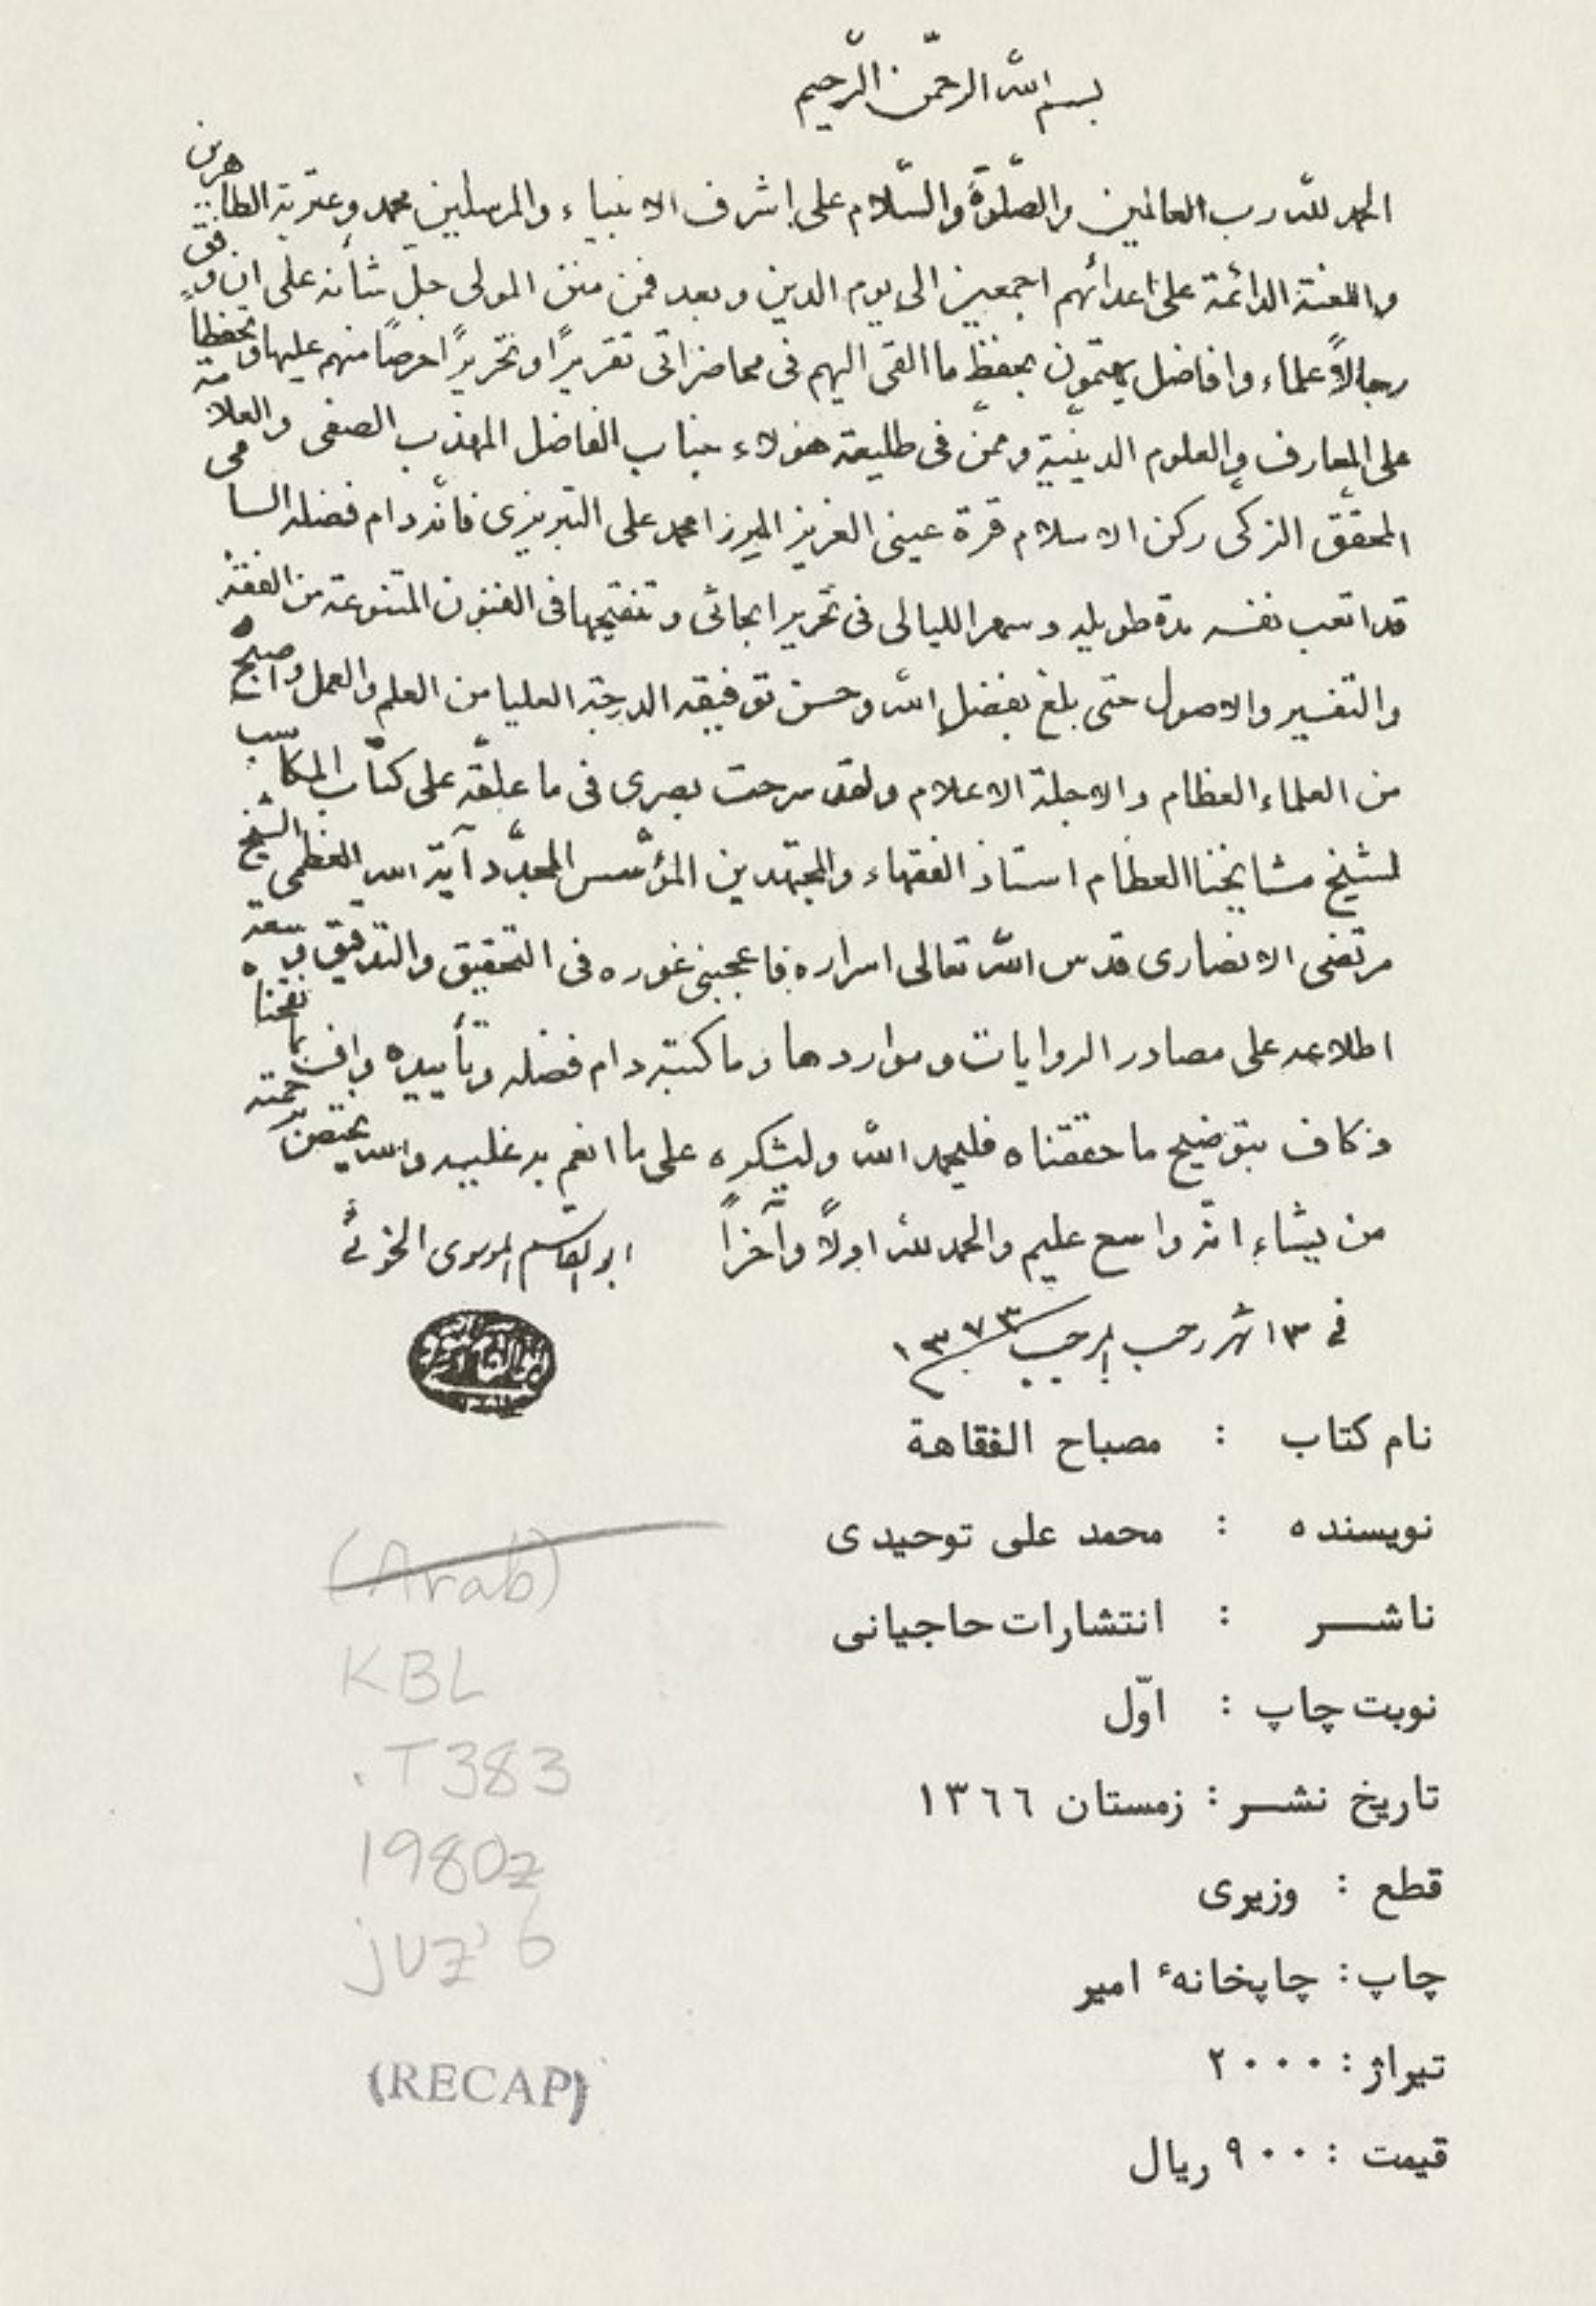 بسم الله الرحمن الرحيم
الحمد لله رب العالمين والصّلوة والسّلام على اشرف الانبياء والمرسلين محمد وعترته الطاهرين
واللعنة الدائمة على اعدائهم اجمعين الى يوم الدين وبعد فمن منن المولى جلّ شأنه على ان وفق
رجالاً علماء وافاضل يهتمون بحفظ ما القى اليهم فى محاضراتى تقريرًا وتحريرًا حرصًا منهم عليها وتحفظاً
على المعارف والعلوم الدينيّة وممّن فى طليعة هؤلاء جناب الفاضل المهذب الصفى والعلامة
المحقق الزكى ركن الاسلام قرة عينى العزيز الميرزا محمد على التبريزى فانّه دام فضله السامى
قد اتعب نفسه مدة طويلة وسهر الليالى فى تحرير ابحاثى وتنقيحها فى الفنون المتنوعة من الفقه
والتفسير والاصول حتى بلغ بفضل الله وحسن توفيقه الدرجة العليا من العلم والعمل واصبح
من العلماء العظام والاجلة الاعلام ولقد سرحت بصرى فى ما علّقه على كتاب المكاسب
لشيخ مشايخنا العظام استاذ الفقهاء والمجتهدين المؤسّس المجدّد آية الله العظمى الشيخ
مرتضى الانصارى قدس الله تعالى اسراره فاعجبنى غوره فى التحقيق والتدقيق وسعة
اطلاعه على مصادر الروايات ومواردها وما كتبه دام فضله وتأييده واف بما نقحناه
وكاف بتوضيح ما حققناه فليحمد الله وليشكره على ما انعم به عليه والله يختص برحمته
من يشاء انّه واسع عليم والحمد لله اولاً وآخراً ابو القاسم الموسوى الخوئى
فى ١٣ شهر رجب المرجب ١٣٧٣
نام کتاب : مصباح الفقاهة
نویسنده : محمد علی توحیدی
ناشر : انتشارات حاجیانی
نوبت چاپ : اوّل
تاریخ نشر : زمستان ١٣٦٦
قطع : وزیری
چاپ : چاپخانهٔ امیر
تیراژ : ٢٠٠٠
قیمت : ٩٠٠ ریال
(Arab)
KBL
.T383
1980z
juz' 6
(RECAP)